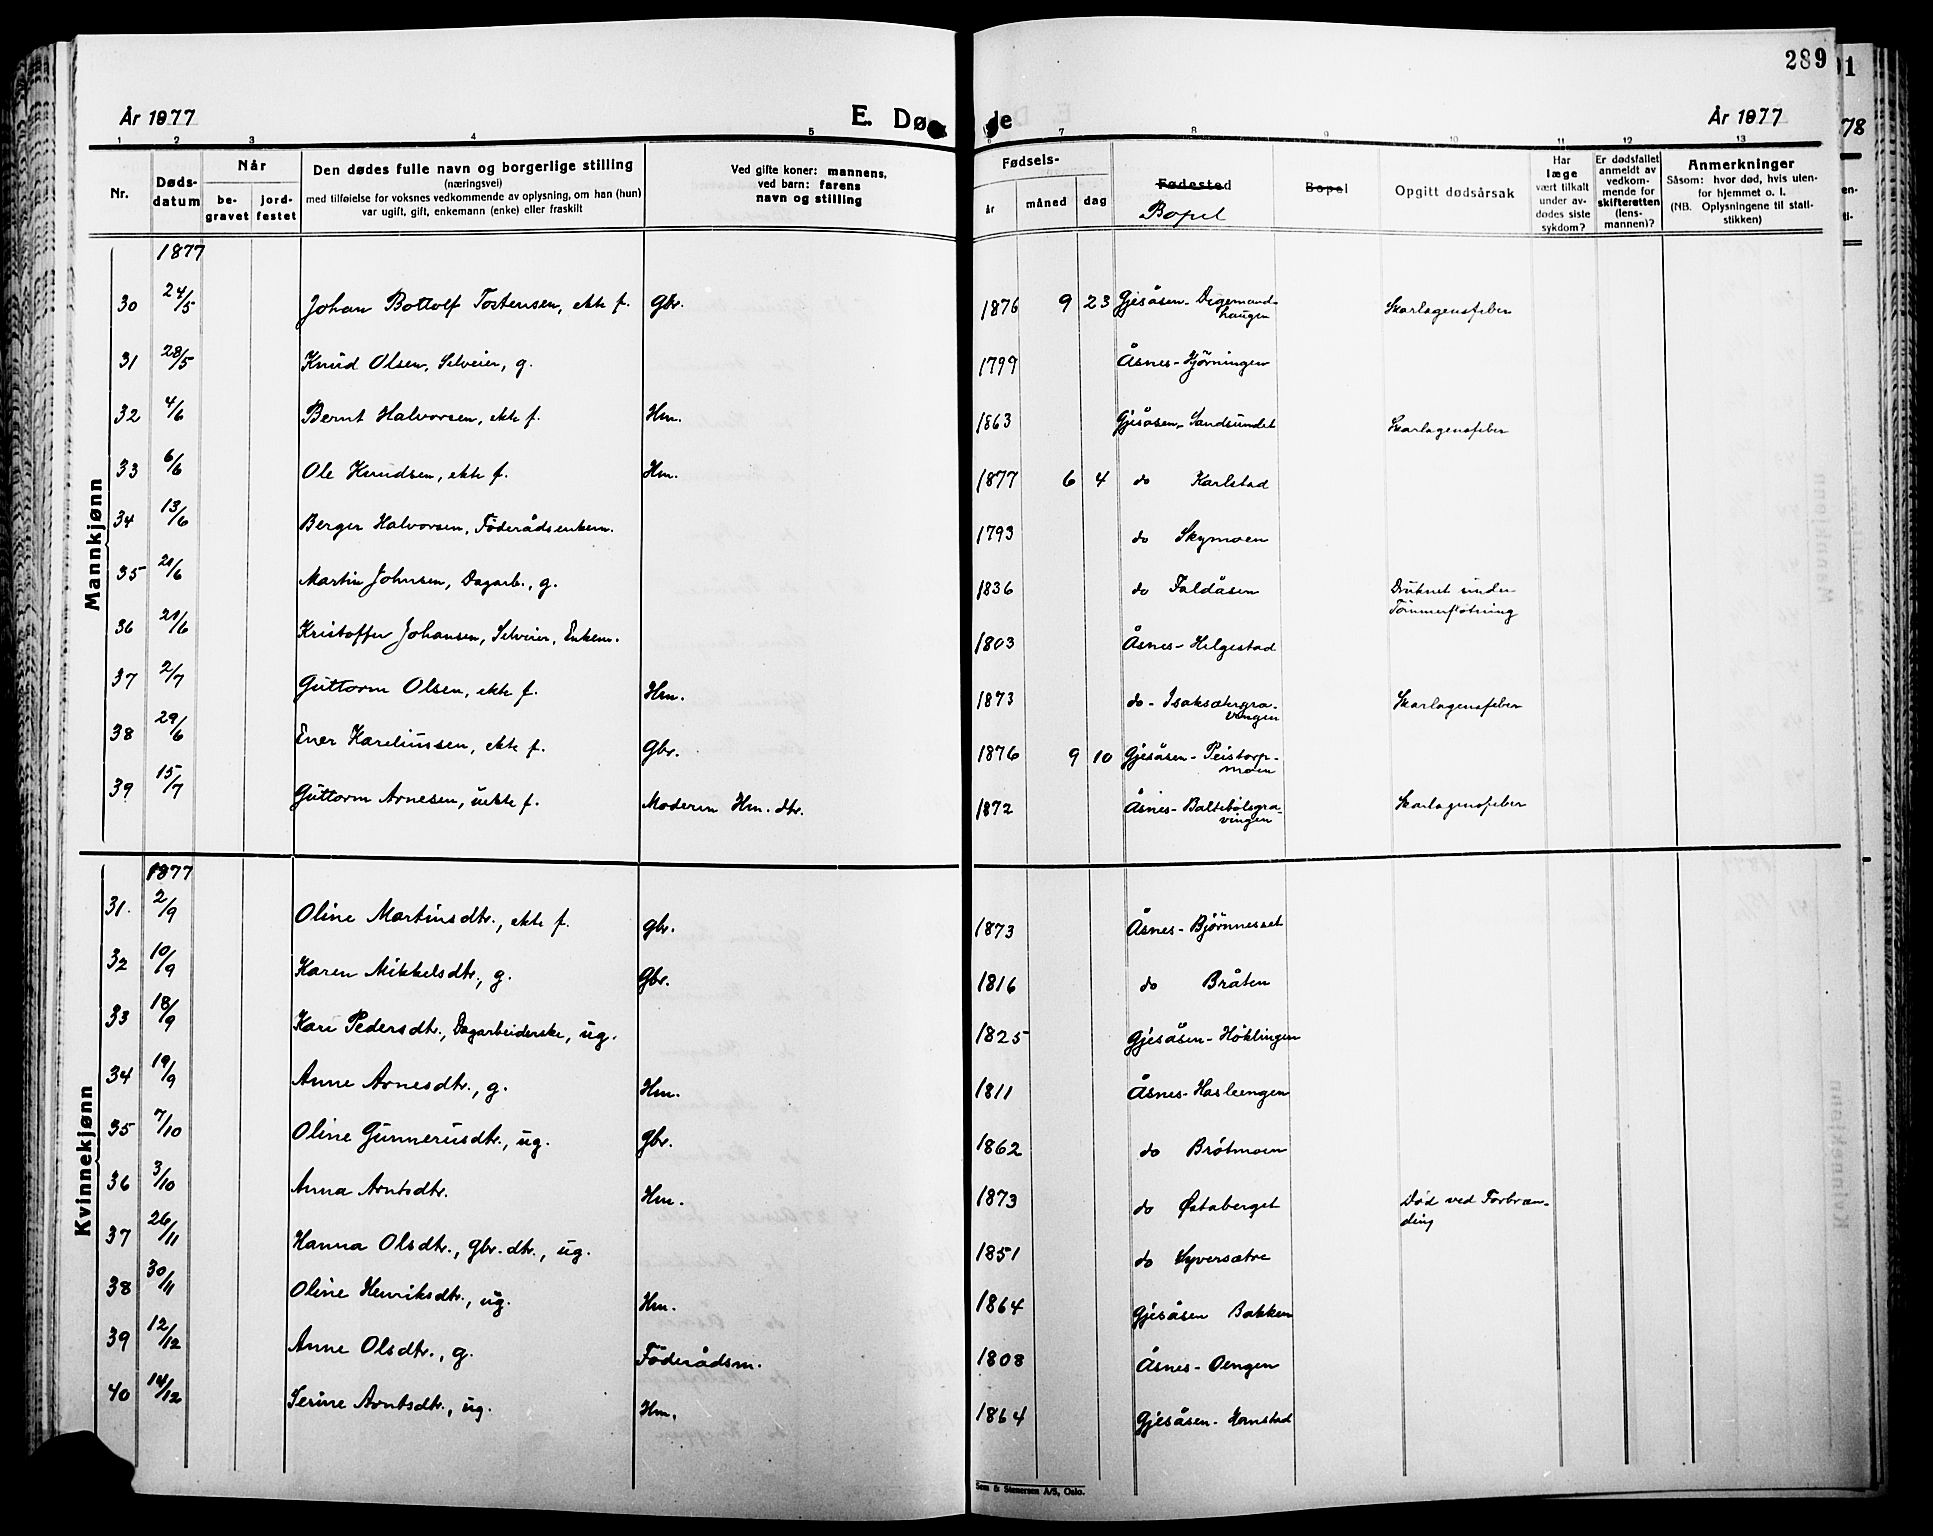 289
91
År 1877
E. Dø
de
År 1877
78
1 2 3 4 5 6 7 8 9 10 11 12 13
Nr.
Døds-
datum
Når
be-
gravet
jord-
festet
Den dødes fulle navn og borgerlige stilling
(næringsvei)
med tilføielse for voksnes vedkommende av oplysning, om han (hun)
var ugift, gift, enkemann (enke) eller fraskilt
Ved gifte koner: mannens,
ved barn: farens
navn og stilling
Fødsels-
år
måned
dag
Fødested
Bopel
Bopel
Opgitt dødsårsak
Har
læge
vært tilkalt
under av-
dødes siste
sykdom?
Er dødsfallet
anmeldt av
vedkom-
mende for
skifteretten
(lens-
mannen)?
Anmerkninger
Såsom: hvor død, hvis uten-
for hjemmet o. l.
(NB. Oplysningene til stati-
stikken)
Mannkjønn
1877
30 24/5 Johan Bottolf Tostensen, ekte f. Gbr. 1876 9 23 Gjesåsen- Degemand-
haugen Skarlagensfeber
31 28/5 Knud Olsen, Selveier, g. 1799 Åsnes- Hjörningen
32 4/6 Bernt Halvorsen, ekte f. Hm. 1863 Gjesåsen- Sandsundet Skarlagensfeber
33 6/6 Ole Knudsen, ekte f. Hm. 1877 6 4 do Karlstad
34 13/6 Berger Halvorsen, Föderådsenkem. 1793 do Skymoen
35 21/6 Martin Johnsen, Dagarb., g. 1836 do Faldåsen Druknet under
Tömmerflötning
36 21/6 Kristoffer Johansen, Selveier, Enkem. 1803 Åsnes- Helgestad
37 2/7 Guttorm Olsen, ekte f. Hm. 1873 do- Isaksætergra-
vingen Skarlagensfeber
38 29/6 Ener Kareliussen, ekte f. Gbr. 1876 9 10 Gjesåsen- Peistorp-
moen
39 15/7 Guttorm Arnesen, uekte f. Moderen Hm. dtr. 1872 Åsnes- Baltebölsgra-
vingen Skarlagensfeber
Kvinnekjønn
1877
31. 2/9 Oline Martinsdtr., ekte f. Gbr. 1873 Åsnes- Björnnesset
32 10/9 Karen Mikkelsdtr., g. Gbr. 1816 do Bråten
33 18/9 Kari Pedersdtr., Dagarbeiderske, ug. 1825 Gjesåsen- Höklingen
34 19/9 Anne Arnesdtr., g. Hm. 1811 Åsnes- Hasleengen
35 7/10 Oline Gunnerusdtr., ug. Gbr. 1862 do Brötmoen
36 3/10 Anna Arntsdtr. Hm. 1873 do Østaberget Död ved Forbræn-
ding
37 26/11 Hanna Olsdtr., Gbr. dtr., ug. 1851 do Syversætre
38 30/11 Oline Henriksdtr., ug. Hm. 1864 Gjesåsen Bakken
39 12/12 Anne Olsdtr., g. Föderådsm. 1808 Åsnes- Oengen
40 14/12 Serine Arntsdtr., ug. Hm. 1864 Gjesåsen- Kornstad
Sem & Stenersen A/S, Oslo.